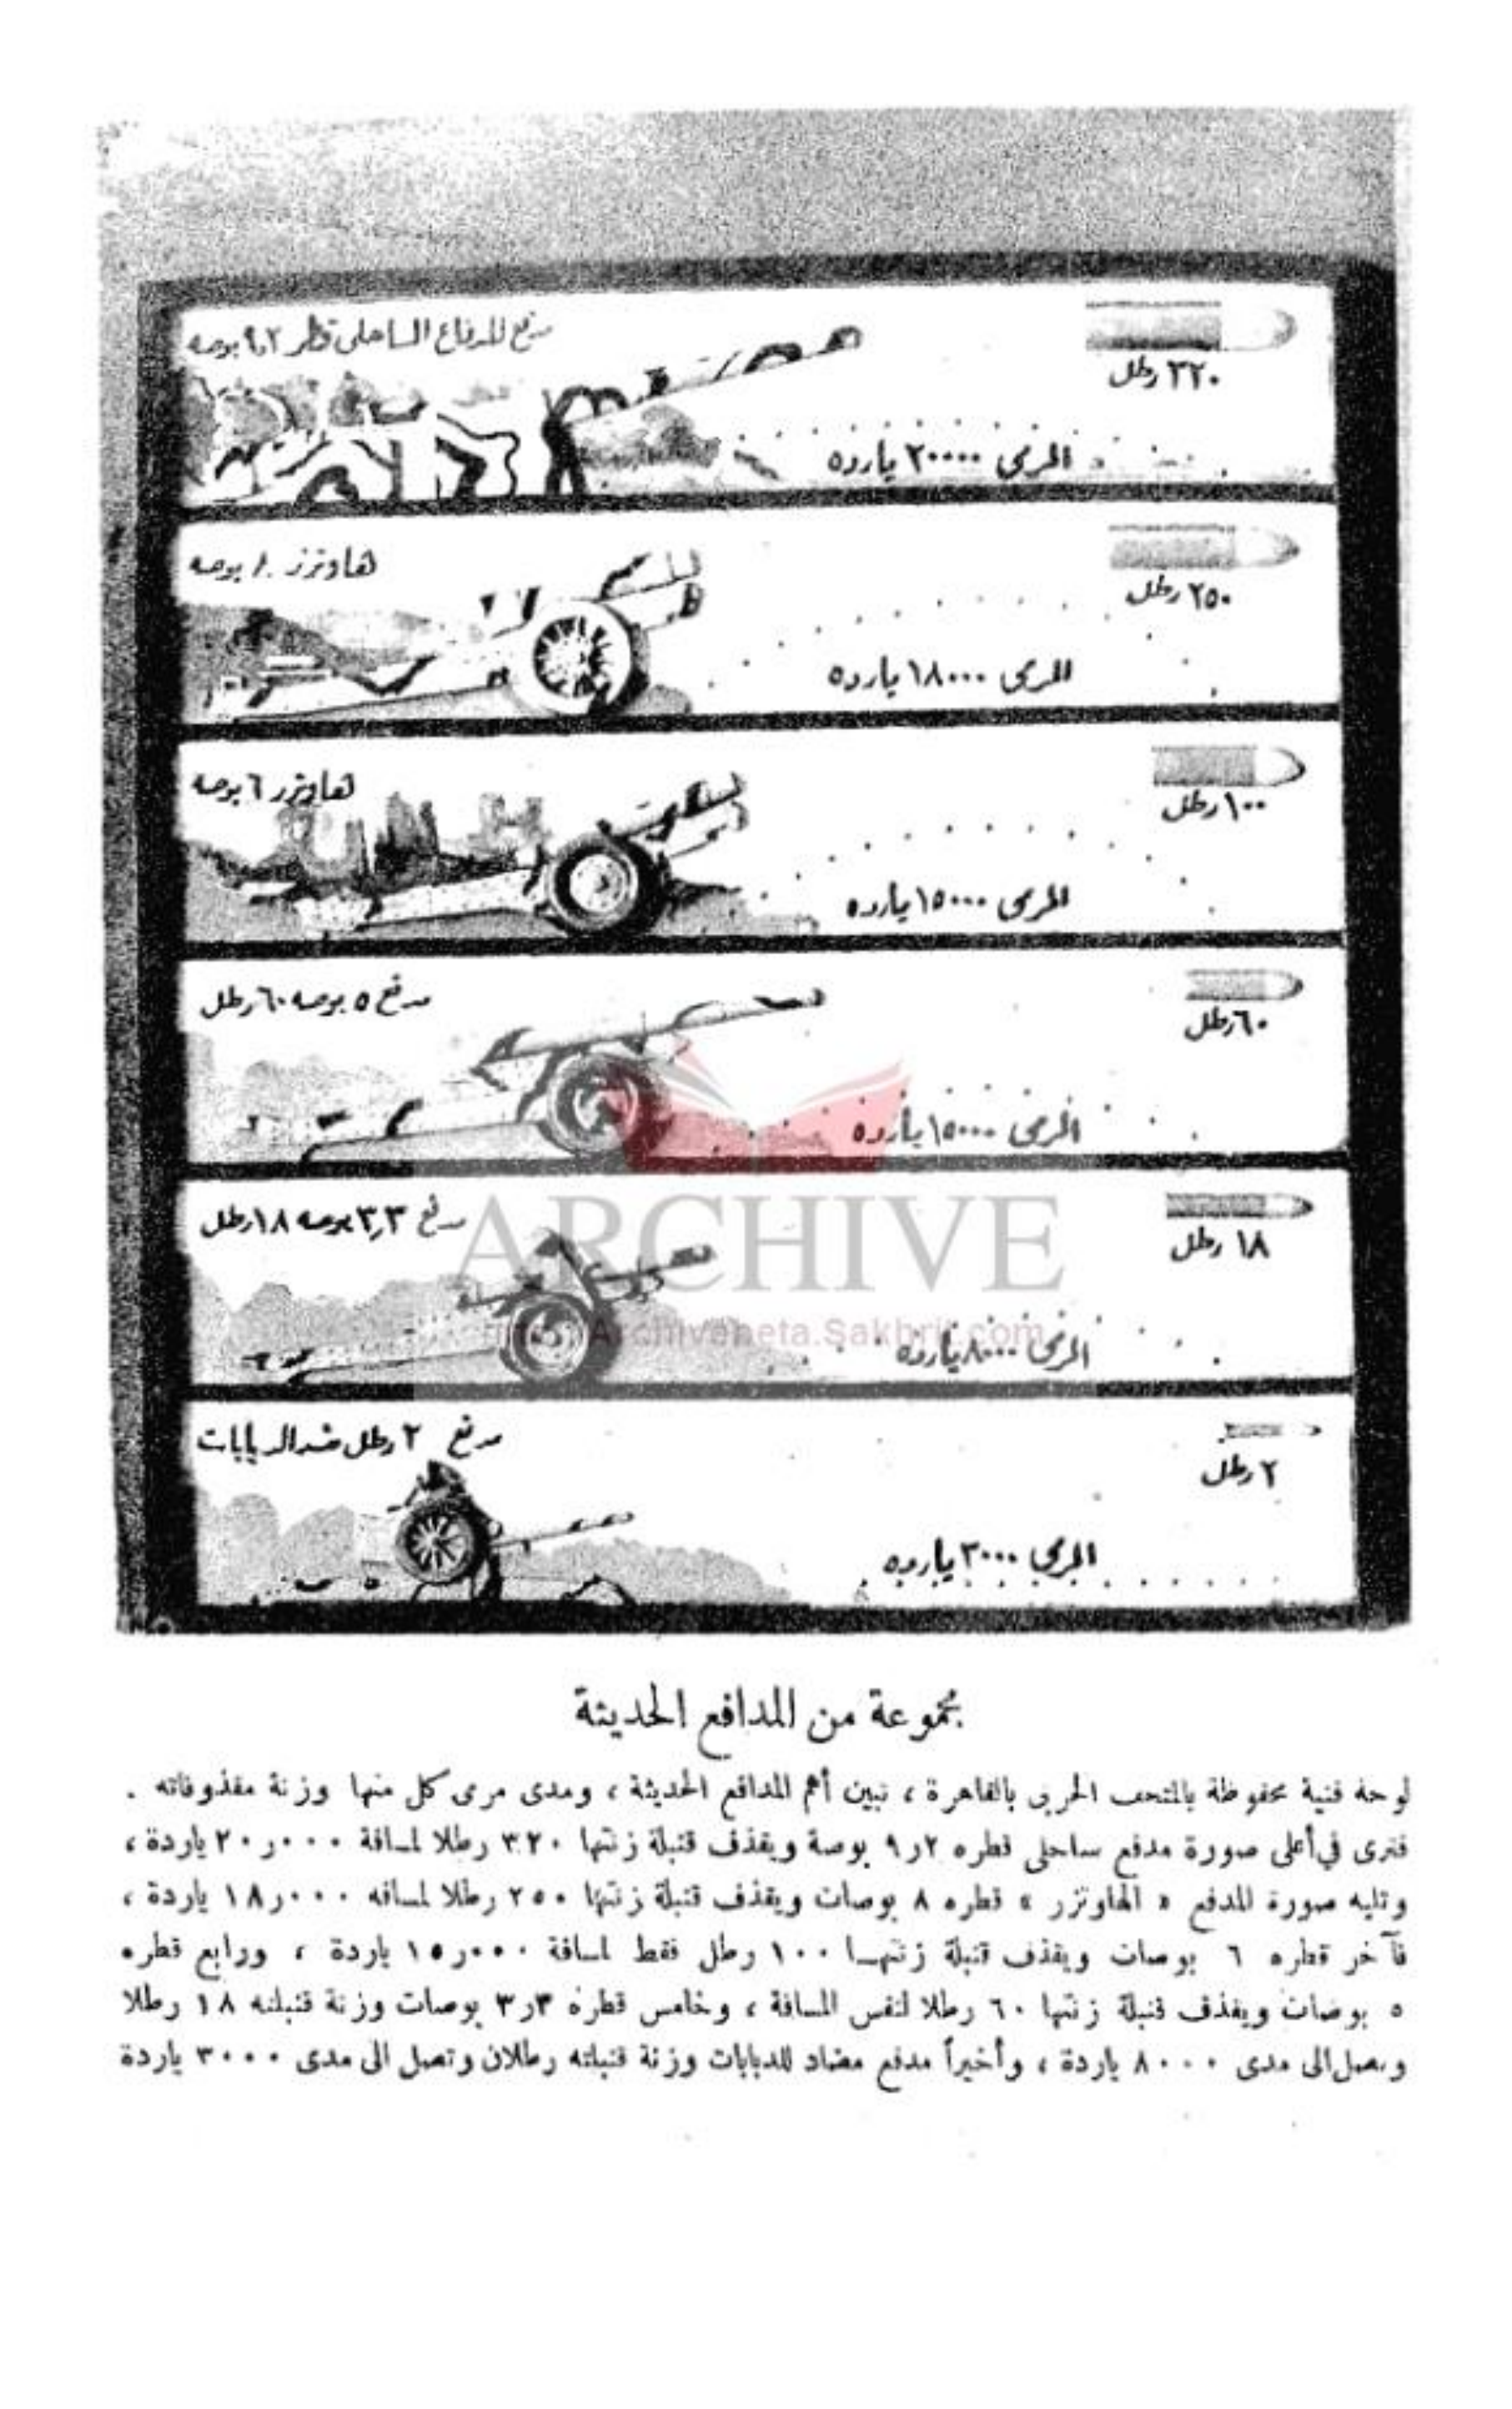 مدفع للدفاع الساحلى قطر ٩٫٢ بوصه
٣٢٠ رطل
المرمى ٢٠٠٠٠ يارده
هاوتزر ٨ بوصه
٢٥٠ رطل
المرمى ١٨٠٠٠ يارده
هاوتزر ٦ بوصه
١٠٠ رطل
المرمى ١٥٠٠٠ يارده
مدفع ٥ بوصه ٦٠ رطل
٦٠ رطل
المرمى ١٥٠٠٠ يارده
مدفع ٣٫٣ بوصه ١٨ رطل
١٨ رطل
ARCHIVE
http://Archivebeta.Sakhrit.com
المرمى ٨٠٠٠ يارده
مدفع ٢ رطل ضد الدبابات
٢ رطل
المرمى ٣٠٠٠ يارده
مجموعة من المدافع الحديثة
لوحة فنية محفوظة بالمتحف الحربى بالقاهرة ، تبين أهم المدافع الحديثة ، ومدى مرمى كل منها وزنة مقذوفاته .
فترى في أعلى صورة مدفع ساحلى قطره ٢ر٩ بوصة ويقذف قنبلة زنتها ٣٢٠ رطلا لمسافة ٠٠٠ر٢٠ ياردة ،
وتليه صورة للمدفع « الهاوتزر » قطره ٨ بوصات ويقذف قنبلة زنتها ٢٥٠ رطلا لمسافه ٠٠٠ر١٨ ياردة ،
فآخر قطره ٦ بوصات ويقذف قنبلة زنتهـا ١٠٠ رطل فقط لمسافة ٠٠٠ر١٥ ياردة ، ورابع قطره
٥ بوصات ويقذف قنبلة زنتها ٦٠ رطلا لنفس المسافة ، وخامس قطره ٣ر٣ بوصات وزنة قنبلته ١٨ رطلا
وتصل الى مدى ٨٠٠٠ ياردة ، وأخيراً مدفع مضاد للدبابات وزنة قنبلته رطلان وتصل الى مدى ٣٠٠٠ ياردة